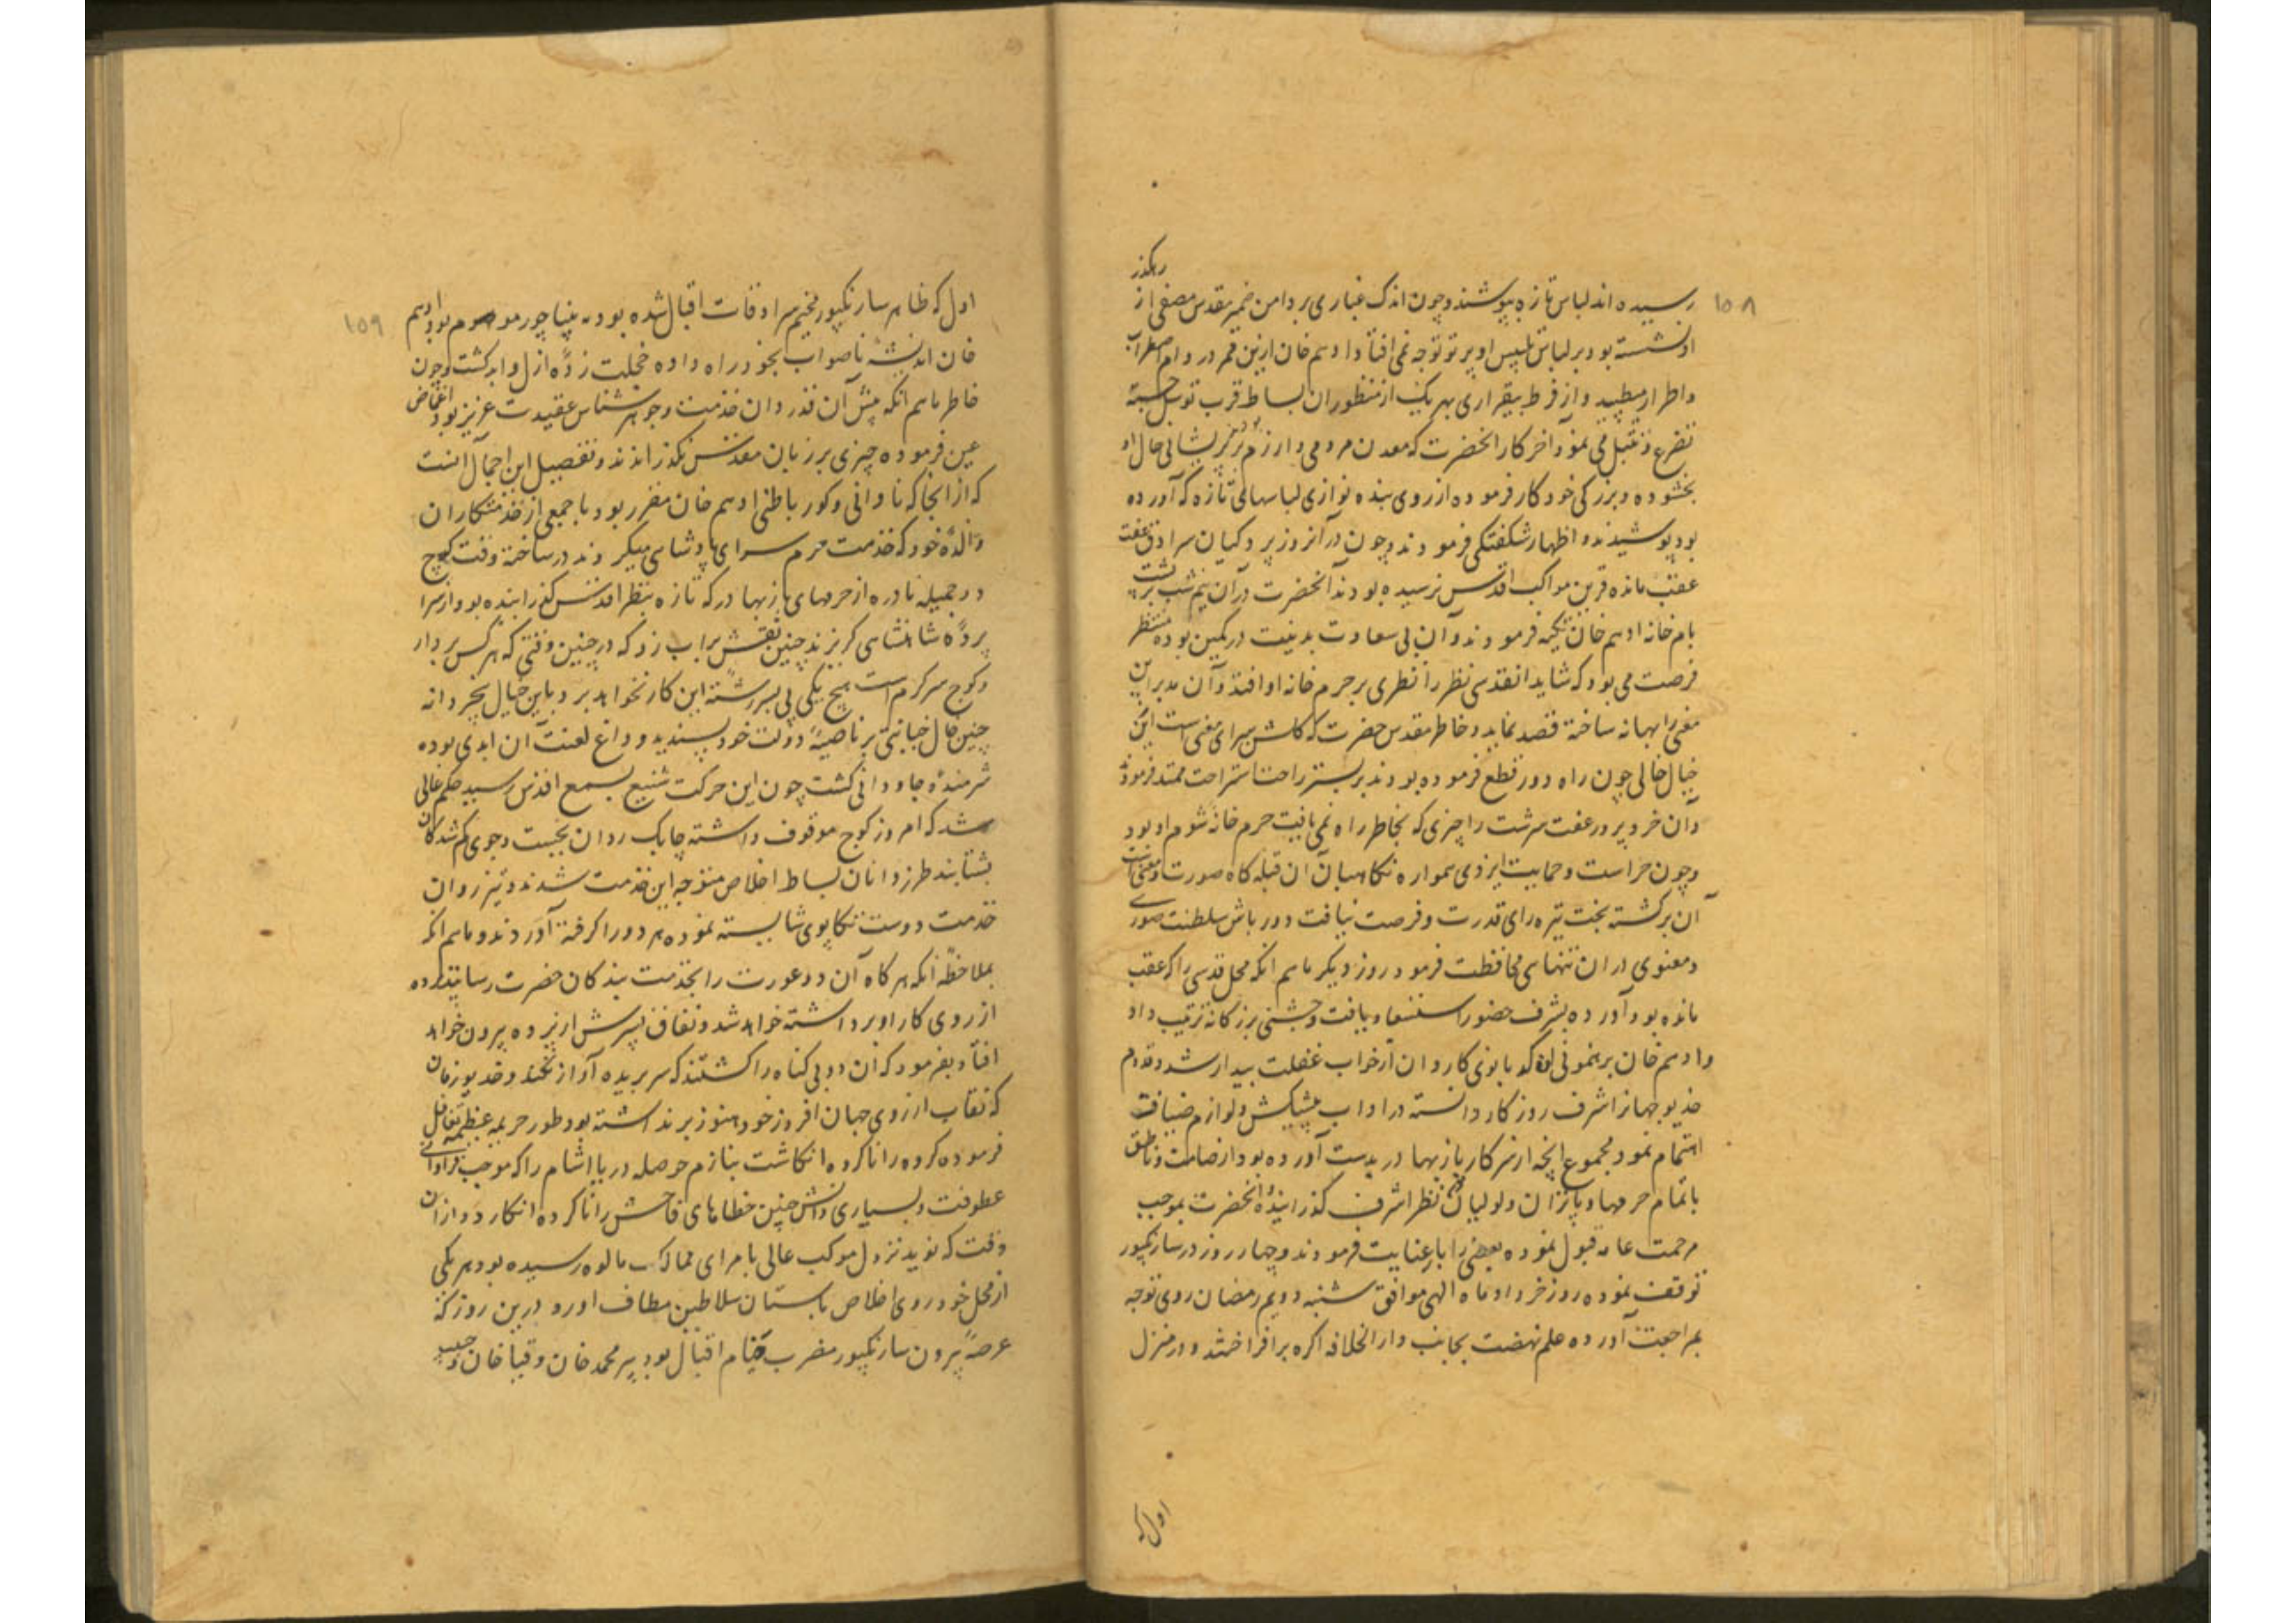 رهگذر
۱۰۸
رسیده اند لباس تازه بپوشند و چون اندک غباری بر دامن ضمیر مقدس مصفی از
او نشسته بود بر لباس تلبیس او پرتو توجه نمی افتاد ادهم خان ازین قمر در دام اضطراب
و اضطرار می طپید و از فرط بیقراری بهر یک از منظوران بساط قرب توسل جسته
تضرع و تبتل می نمود آخر کار آنحضرت که معدن مردمی و ارزم بر پریشانی حال او
بخشوده و بزرگی خود کار فرموده از روی بنده نوازی لباسهای تازه که آورده
بود پوشیدند و اظهار شکفتگی فرمودند و چون در آنروز پردگیان سرادق عفت
عقب مانده قرین مواکب اقدس نرسیده بودند آنحضرت در آن نیم شب بر پشت
بام خانه ادهم خان تکیه فرمودند و آن بی سعادت بدنیت در کمین بوده منتظر
فرصت می بود که شاید آنقدسی نظر را نظری بر حرم خانه او افتد و آن مدبر این
معنی را بهانه ساخته قصد نماید و خاطر مقدس حضرت که گلشن سرای معنی است ازین
خیال خالی چون راه دور قطع فرموده بودند بر بستر راحت استراحت ممتد فرمودند
و آن خرد پرور عفت سرشت را چیزی که بخاطر راه نمی یافت حرم خانه شوم او بود
و چون حراست و حمایت ایزدی همواره نگاهبان آن قبله گاه صورت و معنی است
آن برگشته بخت تیره رای قدرت و فرصت نیافت دور باش سلطنت صوری
و معنوی در آن تنهایی محافظت فرمود روز دیگر ماهم انکه محل قدسی را که عقب
مانده بود آورده بشرف حضور استسعاد یافت و جشنی بزرگانه ترتیب داد
و ادهم خان برهنمونی آن کدبانوی کاردان از خواب غفلت بیدار شد و قدوم
خدیو جهانرا شرف روزگار دانسته در آداب پیشکش و لوازم ضیافت
اهتمام نمود و مجموع آنچه از سرکار بازبهادر بدست آورده بود از صامت و ناطق
با تمام حرمها و پاتران و لولیان بنظر اشرف گذرانید و آنحضرت بموجب
مرحمت عامه قبول نموده بعضی را بار عنایت فرمودند و چهار روز در سارنگپور
توقف نموده روز خرداد ماه الهی موافق شنبه دویم رمضان روی توجه
بمراجعت آورده علم نهضت بجانب دار الخلافه اگره برافراختند و در منزل
اول که
۱۰۹
اول که ظاهر سارنگپور مخیم سرادقات اقبال شده بود ادهم
خان اندیشه ناصواب بخود راه داده خجلت زده ازل و ابد گشت و چون
خاطر ماهم انکه پیش آن قدردان خدمت و جوهر شناس عقیدت عزیز بود اغماض
عین فرموده چیزی بر زبان مقدس نگذرانیدند و تفصیل این اجمال آنست
که از آنجا که نادانی و کور باطنی ادهم خان مقرر بود با جمعی از خدمتکاران
والده خود که خدمت حرم سرای پادشاهی میکردند در ساخته وقت کوچ
دو جمیله نادره از حرمهای بازبهادر که تازه بنظر اقدس گذرانیده بود از سرا
پرده شاهنشاهی گریزند چنین نقش بر آب زد که در چنین وقتی که هر کس بر دار
و کوچ سرگرم است هیچ یکی پی بسر رشته این کار نخواهد برد و باین خیال بخردانه
چنین خال خیانتی بر ناصیه دولت خود پسندید و داغ لعنت آن ابدی بوده
شرمنده جاودانی گشت چون این حرکت شنیع بسمع اقدس رسید حکم عالی
شد که امروز کوچ موقوف داشته چابک روان بجست و جوی گم شدگان
بشتابند طرز دانان بساط اخلاص متوجه این خدمت شدند و تیز روان
خدمت دوست تکاپوی شایسته نموده هر دو را گرفته آوردند و ماهم انکه
بملاحظه آنکه هر گاه آن دو عورت را بخدمت بندگان حضرت رسانند پرده
از روی کار او برداشته خواهد شد و نفاق پسرش از پرده بیرون خواهد
افتاد بفرمود که آن دو بی گناه را کشتند که سر بریده آواز نکند و خدیو زمان
که نقاب از روی جهان افروز خود هنوز بر نداشته بود طور جریمه عظیمه تغافل
فرموده کرده را ناکرده انگاشت بنازم حوصله دریا آشام را که موجب فراوانی
عطوفت و بسیاری دانش چنین خطاهای فاحش را ناکرده انگارد و از آن
وقت که نوید نزول موکب عالی بامرای ممالک مالوه رسیده بود هر یکی
از محل خود روی اخلاص باستان سلاطین مطاف آورد درین روز که
عرصه بیرون سارنگپور مضرب خیام اقبال بود پیر محمد خان و قیا خان و حبیب